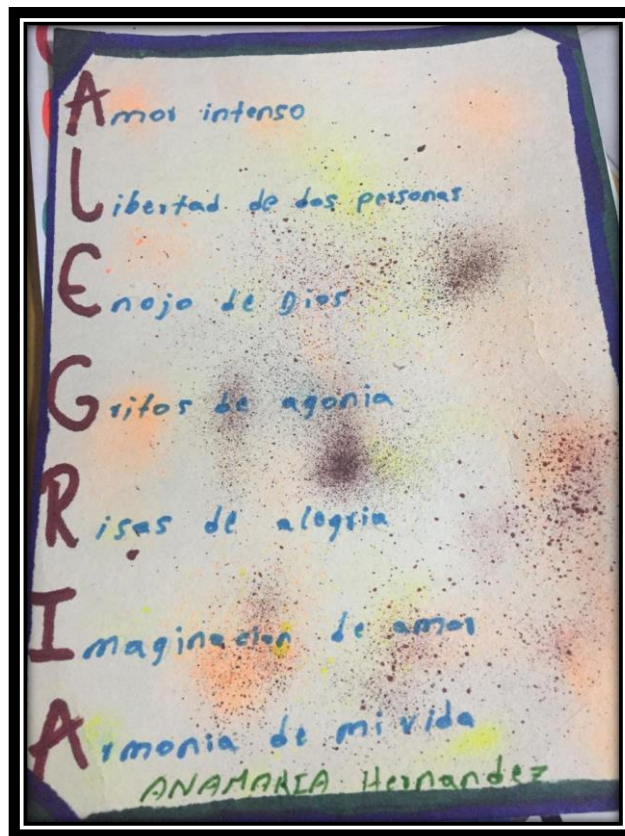 Amor intenso
Libertad de dos personas
Enojo de Dios
Gritos de agonia
Risas de alegria
Imaginacion de amor
Armonia de mi vida
ANAMARIA Hernandez